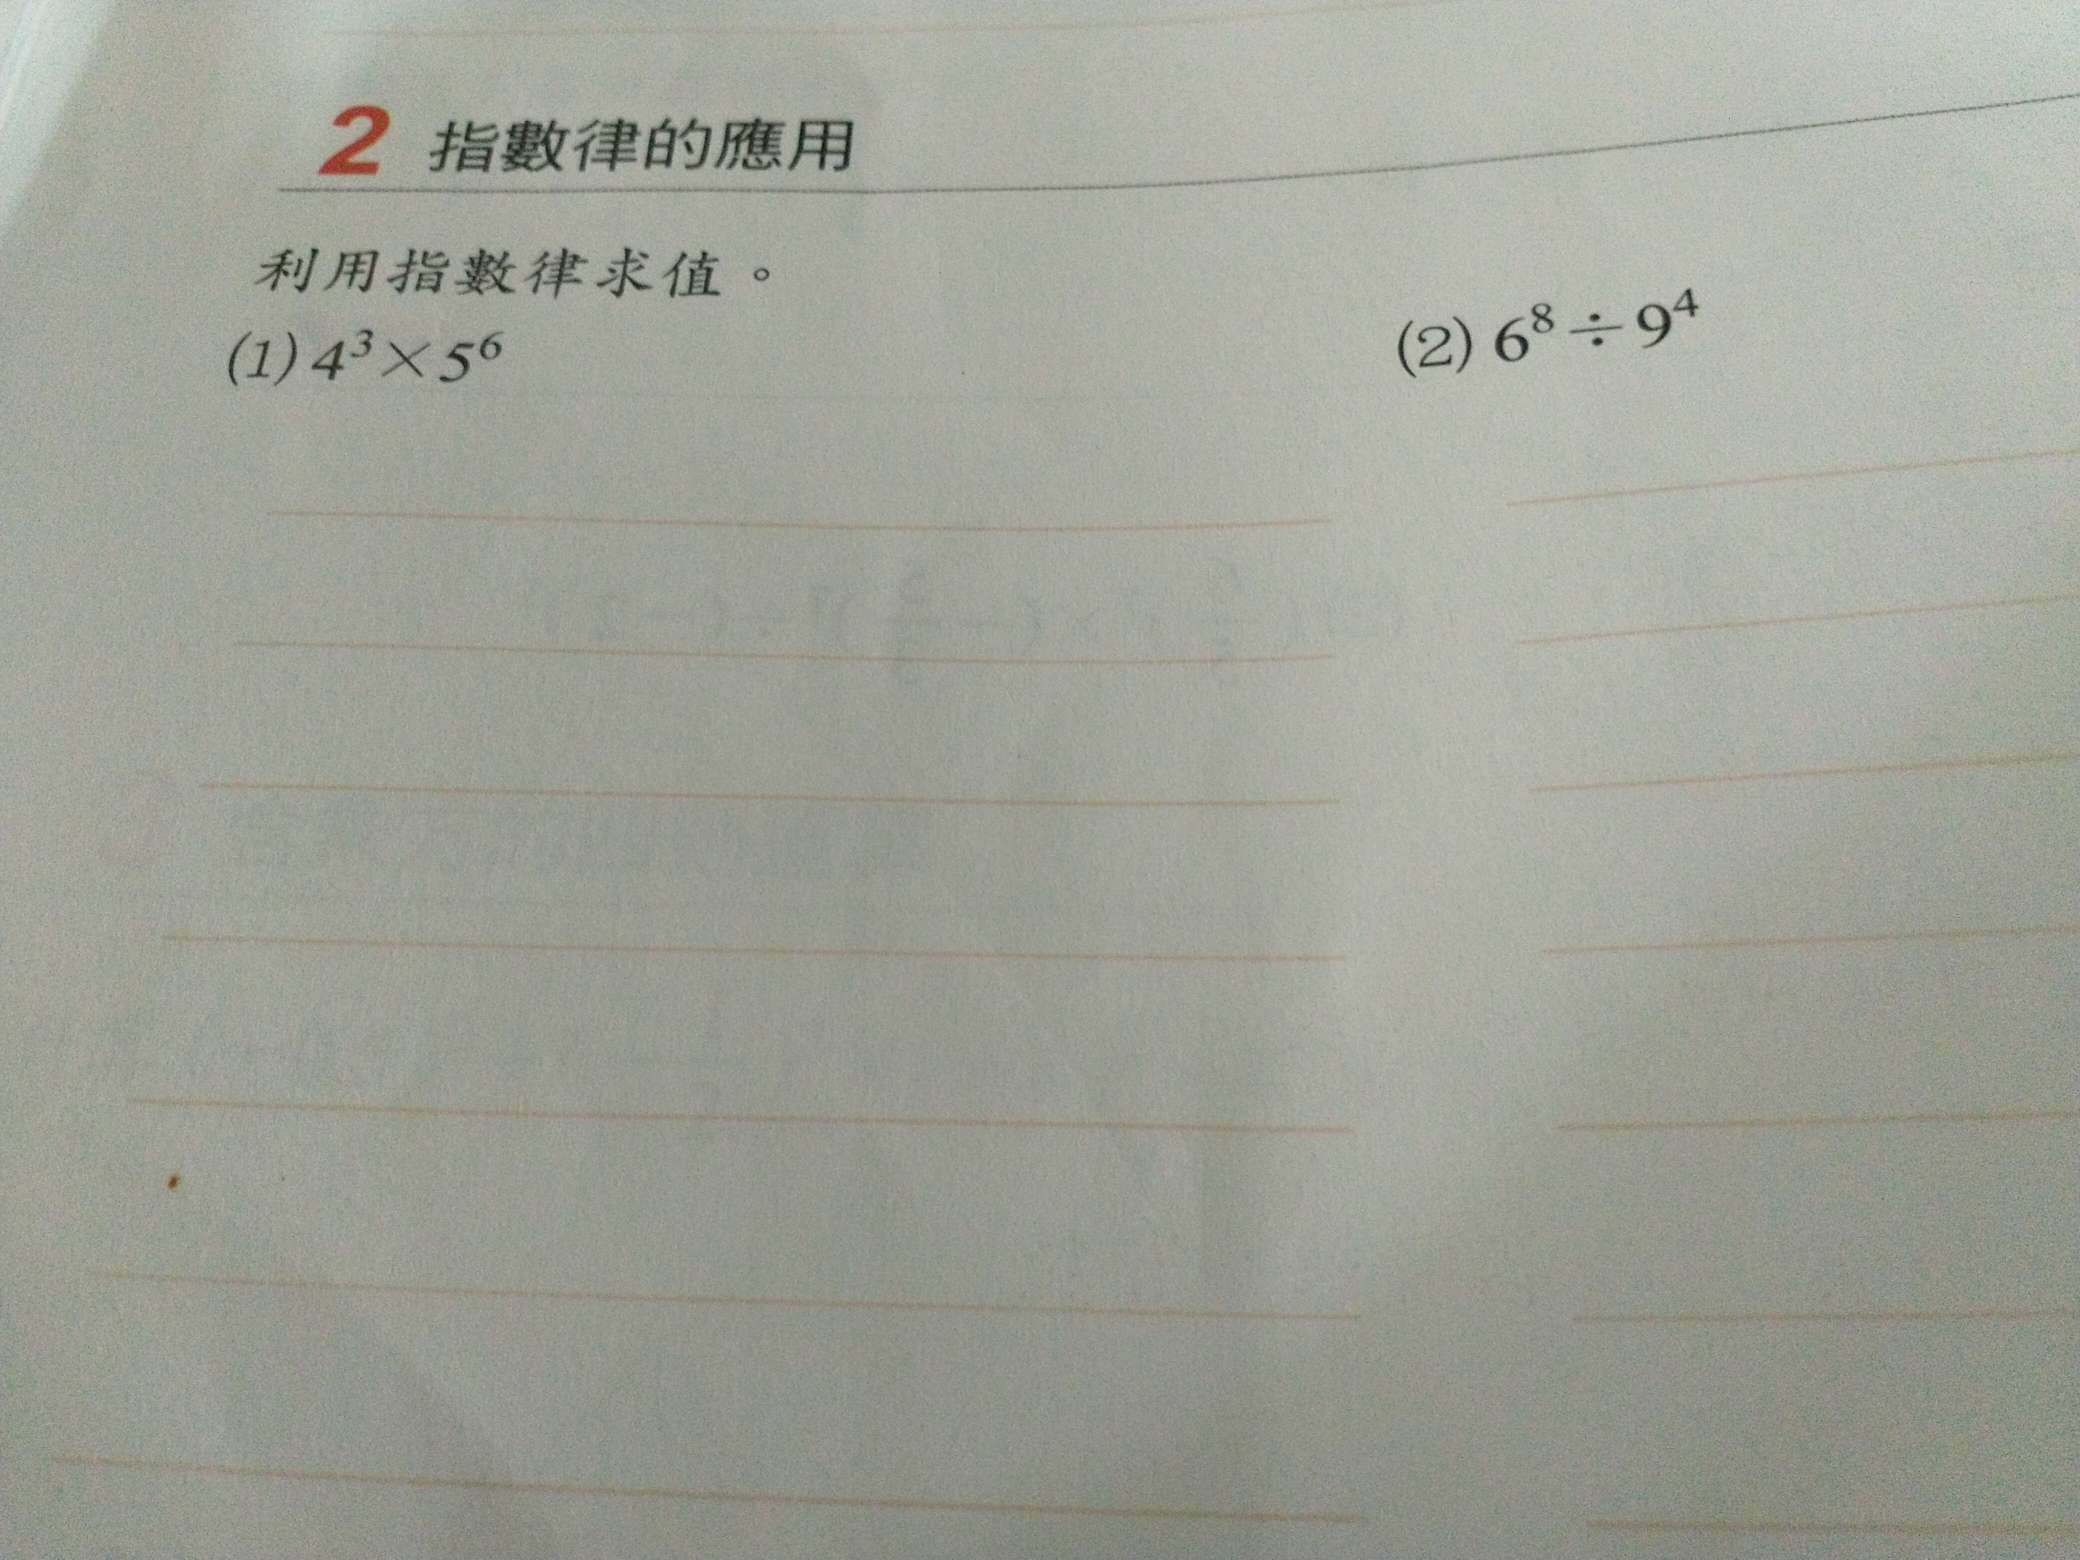 2 指數律的應用
利用指數律求值。
(1) 4³×5⁶
(2) 6⁸÷9⁴